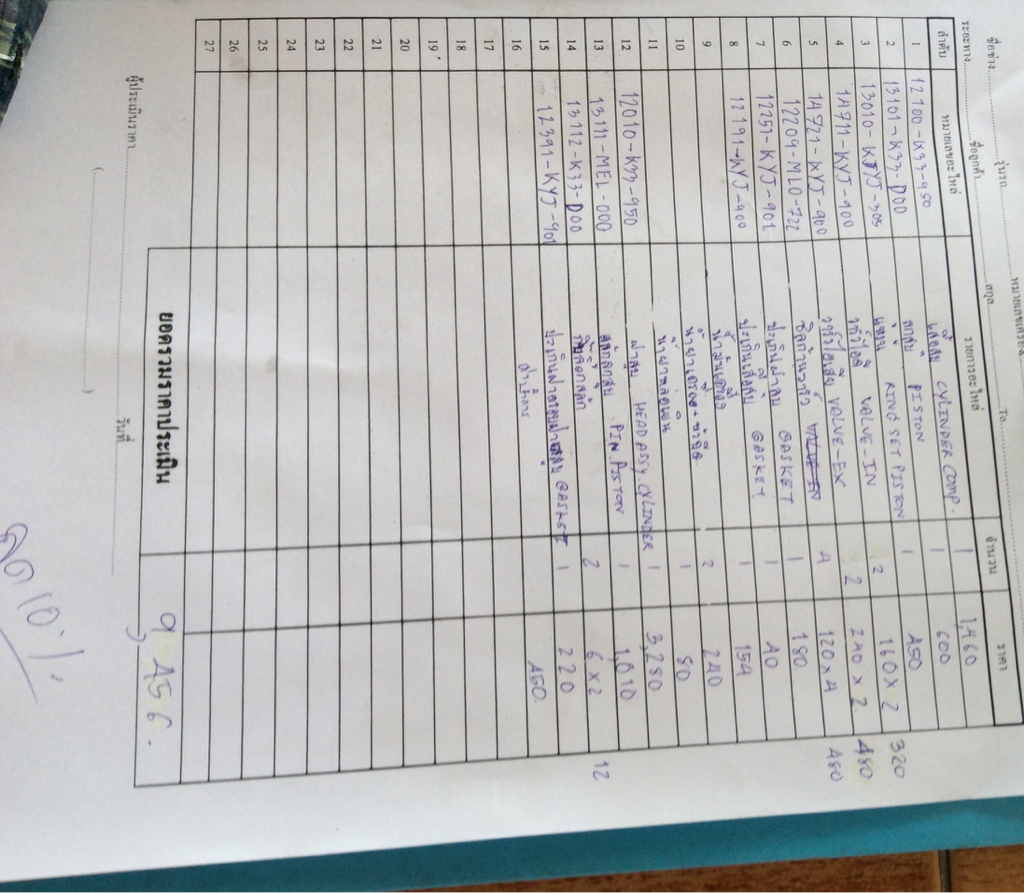 ชื่อช่าง รุ่นรถ หมายเลขเครื่อง
ระยะทาง ชื่อลูกค้า สกุล โทร
ลำดับ หมายเลขอะไหล่ รายการอะไหล่ จำนวน ราคา
1 12100-K33-950 เสื้อสูบ CYLINDER COMP. 1 1,460
2 13101-K33-D00 ลูกสูบ PISTON 1 600
3 13010-KYJ-305 แหวน RING SET PISTON 1 450
4 14711-KYJ-900 วาล์วไอดี VALVE-IN 2 160 x 2 320
5 14721-KYJ-900 วาล์วไอเสีย VALVE-EX 2 240 x 2 480
6 12209-ML0-722 ซีลก้านวาล์ว 4 120 x 4 480
7 12251-KYJ-901 ปะเก็นฝาสูบ GASKET 1 180
8 12191-KYJ-900 ปะเก็นเสื้อสูบ GASKET 1 40
9 น้ำมันเครื่อง 1 154
10 2 240
11 น้ำยาหล่อเย็น 1 80
12 12010-K33-950 ฝาสูบ HEAD ASSY. CYLINDER 1 3,280
13 13111-MEL-000 สลักลูกสูบ PIN PISTON 1 1,010
14 13112-K33-D00 2 6 x 2 12
15 12391-KYJ-901 ปะเก็นฝาครอบฝาสูบ GASKET 1 220
16 ค่าบริการ 450
17
18
19
20
21
22
23
24
25
26
27
ยอดรวมราคาประเมิน 9,456.
ผู้ประเมินราคา วันที่
( )
ลด 10%